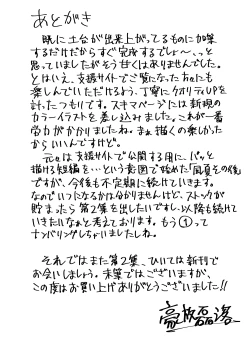 あとがき
既に土台が出来上がってるものに加筆
するだけだからすぐ完成するでしょ〜、っと
思っていましたがそう甘くはありませんでした。
とはいえ、支援サイトでご覧になった方々にも
楽しんでいただけるよう、丁寧にクオリティUPを
計ったつもりです。スキマページには新規の
カラーイラストを差し込みました。これが一番
労力がかかりましたね。まぁ描くの楽しかった
からいいんですけど。
元々は支援サイトで公開する用に、パッと
描ける短編を…という意図で始めた「
ですが、今後も不定期に続けていきます。
なのでいつになるかは分かりませんけど、ストックが
貯まったら第2集を出したいですし、以降も続けて
いきたいなぁと考えております。もう①って
ナンバリングしちゃいましたしね。
それではまた第2集、ひいては新刊で
お会いしましょう。末筆ではございますが、
この度はお買い上げありがとうございました!!
豪放磊落